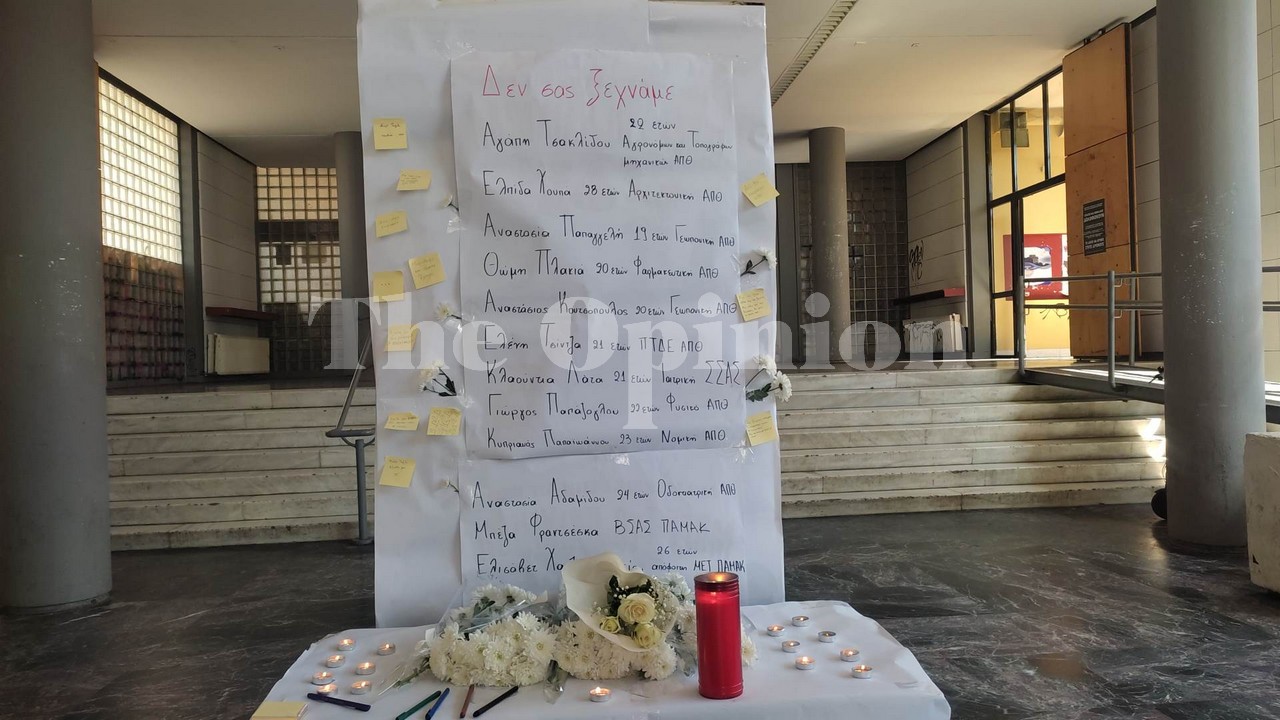 Δεν σας ξεχνάμε
22 ετών
Αγάπη Τσακλίδου Αγρονόμων και Τοπογράφων
μηχανικών ΑΠΘ
Ελπίδα Χούπα 28 ετών Αρχιτεκτονική ΑΠΘ
Αναστασία Παπαγγελή 19 ετών Γεωπονική ΑΠΘ
Θώμη Πλακιά 20 ετών Φαρμακευτική ΑΠΘ
Αναστάσιος Κουτσόπουλος 20 ετών Γεωπονική ΑΠΘ
Ελένη Τσίντζα 21 ετών ΠΤΔΕ ΑΠΘ
Κλαούντια Λάτα 21 ετών Ιατρική ΣΣΑΣ
Γιώργος Παπάζογλου 22 ετών Φυσικό ΑΠΘ
Κυπριανός Παπαϊωάννου 23 ετών Νομική ΑΠΘ
Αναστασία Αδαμίδου 24 ετών Οδοντιατρική ΑΠΘ
Μπέζα Φραντσέσκα ΒΣΑΣ ΠΑΜΑΚ
26 ετών
Ελισάβετ απόφοιτη ΜΕΤ ΠΑΜΑΚ
The Opinion